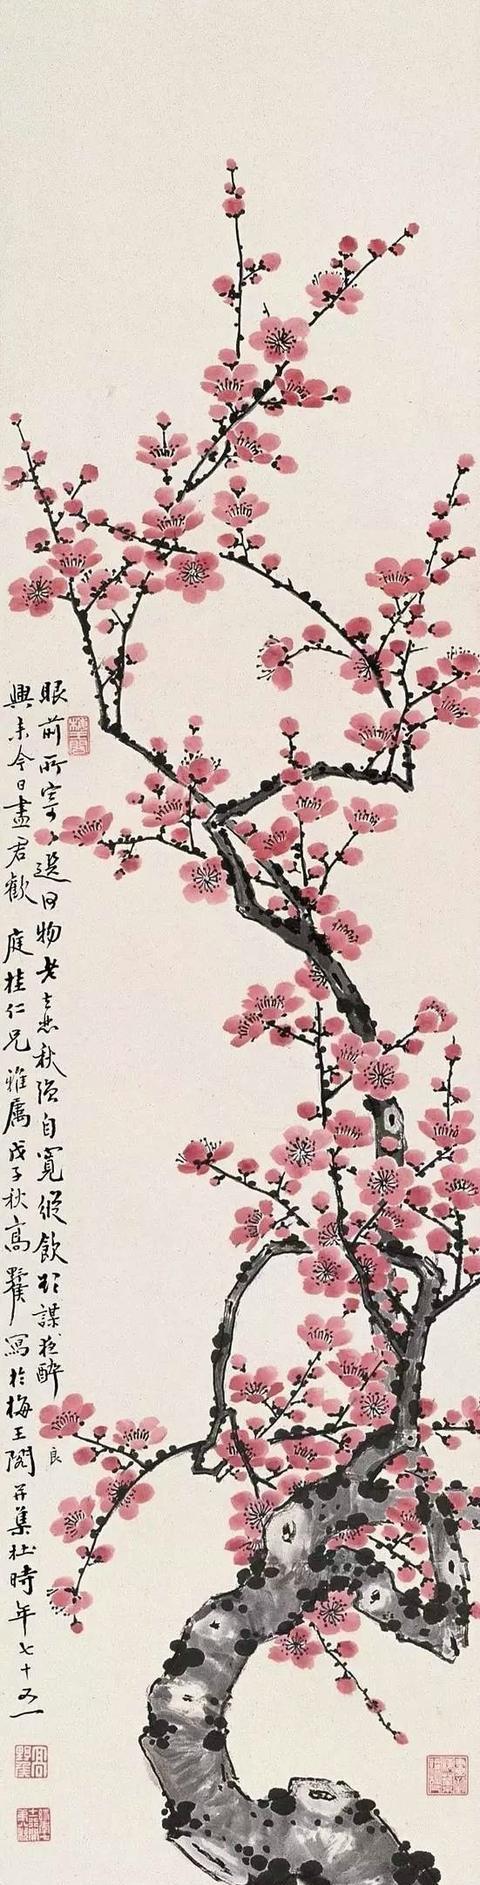 眼前所寄選何物老去悲秋强自寬縱飲欲謀夜醉
良
興來今日盡君歡 庭桂仁兄雅屬戊子秋高野侯寫於梅王閣并集杜時年七十又一